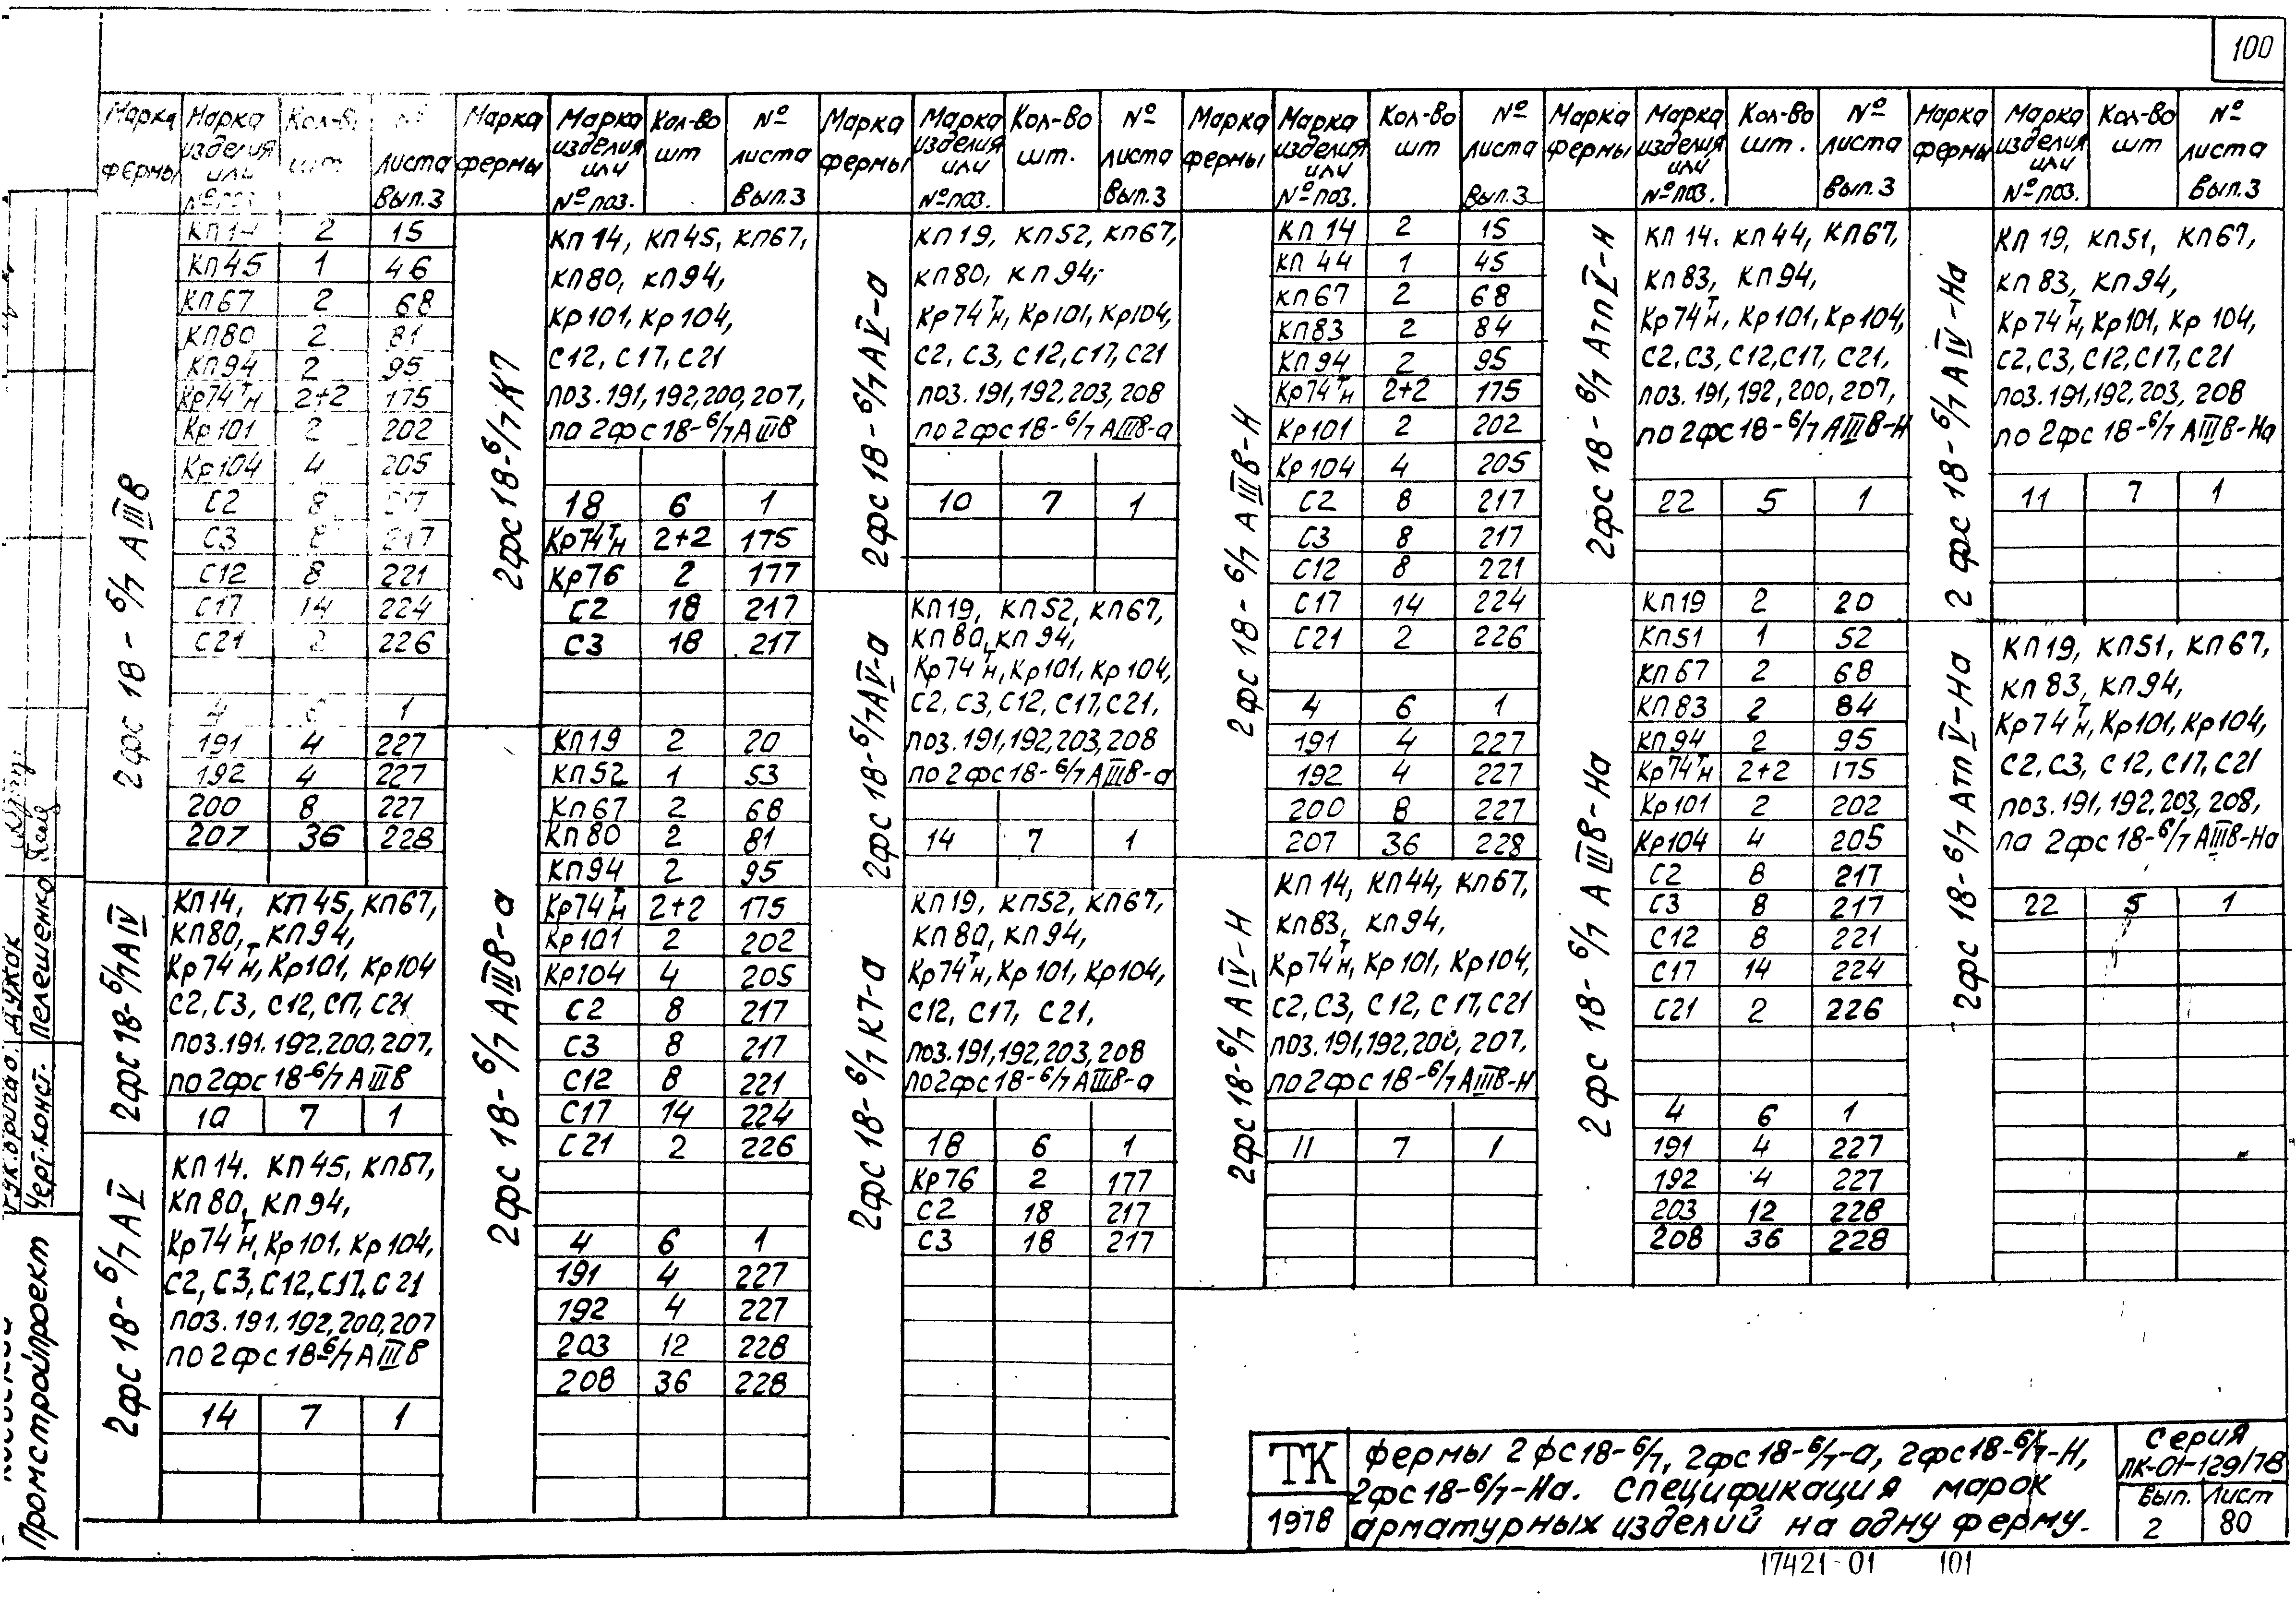 100
Марка фермы | Марка изделия или № поз. | Кол-во шт. | № листа Вып.3
2фс 18-6/7 АIIIв
КП14 2 15
КП45 1 46
КП67 2 68
КП80 2 81
КП94 2 95
Кр74тн 2+2 175
Кр101 2 202
Кр104 4 205
С2 8 217
С3 8 217
С12 8 221
С17 14 224
С21 2 226
4 6 1
191 4 227
192 4 227
200 8 227
207 36 228
2фс18-6/7АIV
КП14, КП45, КП67,
КП80, КП94,
Кр74тн, Кр101, Кр104
С2, С3, С12, С17, С21
поз.191. 192,200,207,
по2фс18-6/7АIIIв
10 7 1
2фс18-6/7АV
КП14. КП45, КП67,
КП80, КП94,
Кр74тн, Кр101, Кр104,
С2, С3, С12, С17, С21
поз.191, 192, 200, 207
по2фс18-6/7АIIIв
14 7 1
Марка фермы | Марка изделия или № поз. | Кол-во шт | № листа Вып.3
2фс18-6/7К7
КП14, КП45, КП67,
КП80, КП94,
Кр101, Кр104,
С12, С17, С21
поз.191, 192,200,207,
по2фс18-6/7АIIIв
18 6 1
Кр74тн 2+2 175
Кр76 2 177
С2 18 217
С3 18 217
2фс18-6/7АIIIв-а
КП19 2 20
КП52 1 53
КП67 2 68
КП80 2 81
КП94 2 95
Кр74тн 2+2 175
Кр101 2 202
Кр104 4 205
С2 8 217
С3 8 217
С12 8 221
С17 14 224
С21 2 226
4 6 1
191 4 227
192 4 227
203 12 228
208 36 228
Марка фермы | Марка изделия или № поз. | Кол-во шт. | № листа Вып.3
2фс18-6/7АV-а
КП19, КП52, КП67,
КП80, КП94,
Кр74тн, Кр101, Кр104,
С2, С3, С12, С17, С21
поз.191, 192, 203, 208
по2фс18-6/7АIIIв-а
10 7 1
2фс18-6/7АV-а
КП19, КП52, КП67,
КП80, КП94,
Кр74тн, Кр101, Кр104,
С2, С3, С12, С17, С21,
поз.191,192,203,208
по2фс18-6/7АIIIв-а
14 7 1
2фс18-6/7К7-а
КП19, КП52, КП67,
КП80, КП94,
Кр74тн, Кр101, Кр104,
С12, С17, С21,
поз.191,192,203,208
по2фс18-6/7АIIIв-а
18 6 1
Кр76 2 177
С2 18 217
С3 18 217
Марка фермы | Марка изделия или № поз. | Кол-во шт | № листа Вып.3
2фс18-6/7АIIIв-Н
КП14 2 15
КП44 1 45
КП67 2 68
КП83 2 84
КП94 2 95
Кр74тн 2+2 175
Кр101 2 202
Кр104 4 205
С2 8 217
С3 8 217
С12 8 221
С17 14 224
С21 2 226
4 6 1
191 4 227
192 4 227
200 8 227
207 36 228
2фс18-6/7АIV-Н
КП14, КП44, КП67,
КП83, КП94,
Кр74тн, Кр101, Кр104,
С2, С3, С12, С17, С21
поз.191,192,200, 207,
по2фс18-6/7АIIIв-Н
11 7 1
Марка фермы | Марка изделия или № поз. | Кол-во шт. | № листа Вып.3
2фс18-6/7АтпV-Н
КП14. КП44, КП67,
КП83, КП94,
Кр74тн, Кр101, Кр104,
С2, С3, С12, С17, С21,
поз. 191, 192, 200, 207,
по2фс18-6/7АIIIв-Н
22 5 1
2фс18-6/7АIIIв-На
КП19 2 20
КП51 1 52
КП67 2 68
КП83 2 84
КП94 2 95
Кр74тн 2+2 175
Кр101 2 202
Кр104 4 205
С2 8 217
С3 8 217
С12 8 221
С17 14 224
С21 2 226
4 6 1
191 4 227
192 4 227
203 12 228
208 36 228
Марка фермы | Марка изделия или № поз. | Кол-во шт | № листа Вып.3
2фс18-6/7АIV-На
КП19, КП51, КП67,
КП83, КП94,
Кр74тн, Кр101, Кр104,
С2, С3, С12, С17, С21
поз.191,192,203, 208
по 2фс18-6/7АIIIв-На
11 7 1
2фс18-6/7АтпV-На
КП19, КП51, КП67,
КП83, КП94,
Кр74тн, Кр101, Кр104,
С2, С3, С12, С17, С21
поз.191, 192, 203, 208,
по 2фс18-6/7АIIIв-На
22 5 1
Дужак
Черт.-конст. Пелешенко
Промстройпроект
ТК
1978
фермы 2фс18-6/7, 2фс18-6/7-а, 2фс18-6/7-Н,
2фс18-6/7-На. Спецификация марок
арматурных изделий на одну ферму.
Серия
ПК-01-129/78
Вып. Лист
2 80
17421-01 101